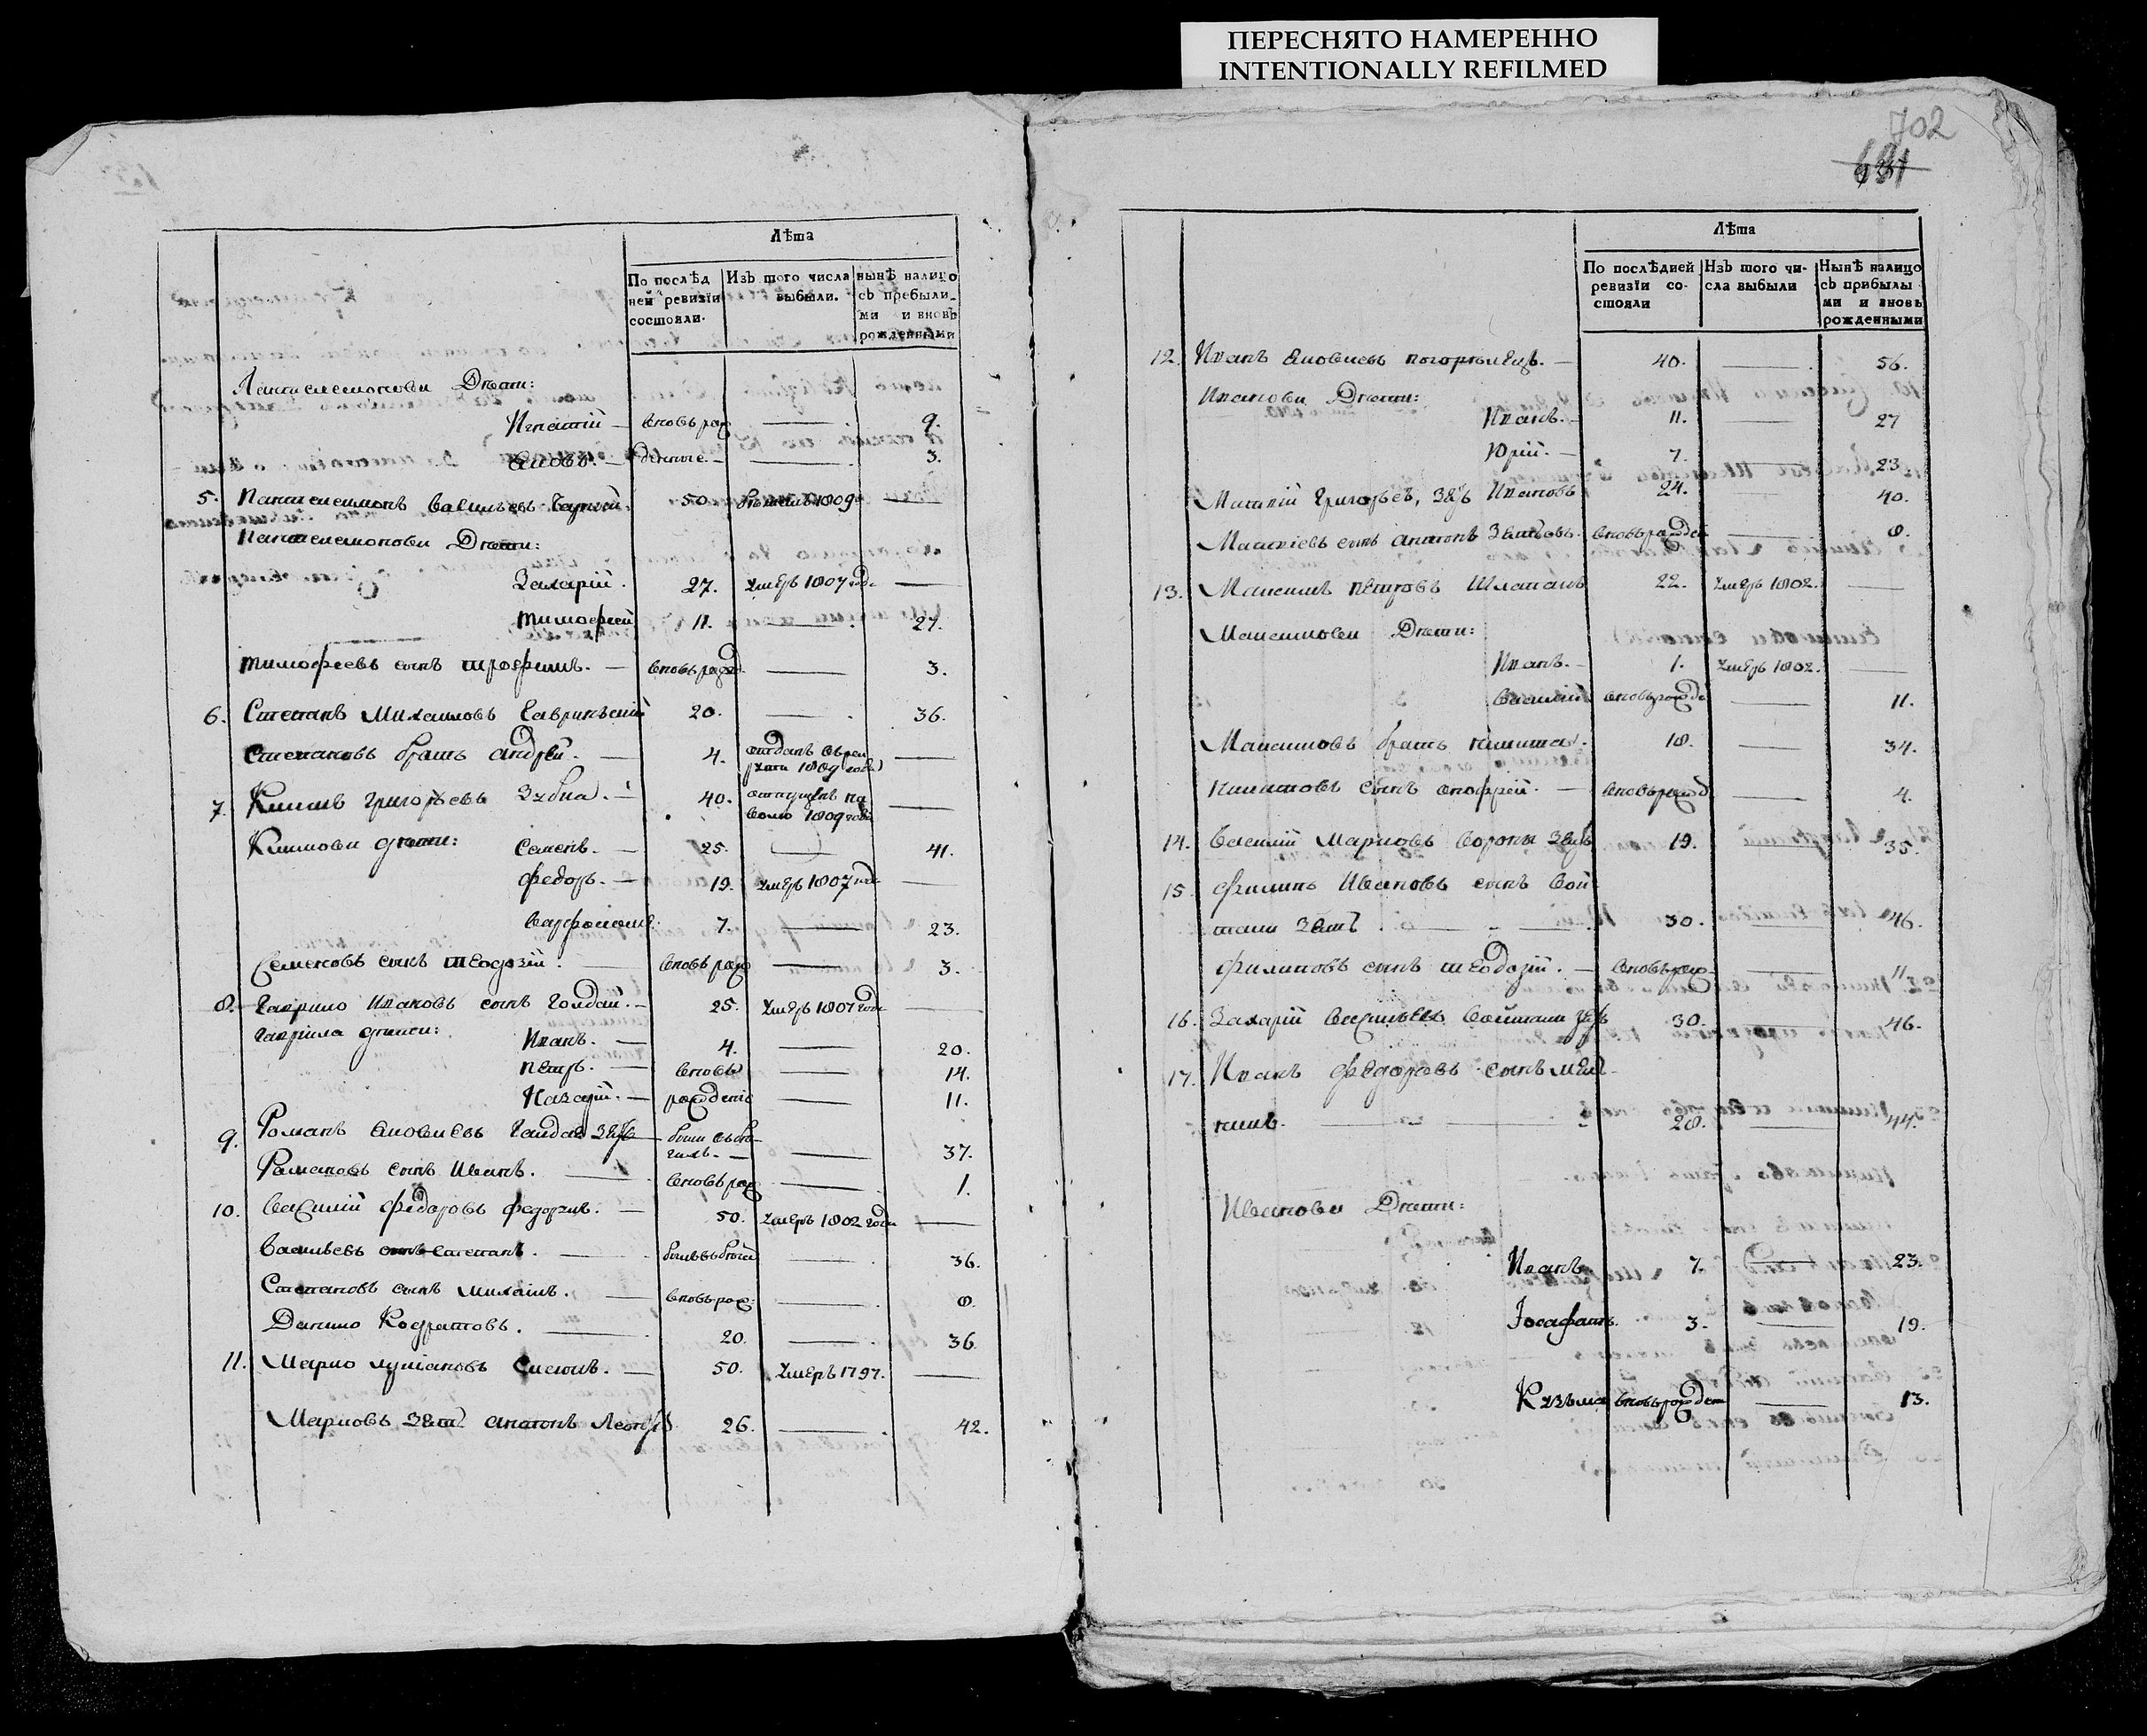 ПЕРЕСНЯТО НАМЕРЕННО
INTENTIONALLY REFILMED
Лѣта
По послѣд
ней ревизіи
состояли.
Изъ того числа
выбыли.
нынѣ налицо
съ прибыли-
ми и вновь
рожденными
Пантелемонови Дѣти:
Игнатій — вновь рож — 9.
Яковъ. — денные. — 3.
5. Пантелемонъ Васильевъ 50. 1809
Пантелемонови Дѣти:
Захарій. 27. умеръ 1807 года —
тимофей 11. — 27.
тимофеевъ сынъ трофимъ. — вновь рожд — 3.
6. Степанъ Михайловъ Гавринскій 20. — 36.
Степановъ братъ андрей. — 4. отданъ в рек
руты 1809 года —
7. Климъ григорьевъ Зубка. — 40. отпущенъ на
волю 1809 года —
Климови дѣти: Семенъ. — 25. — 41.
федоръ. — 19. умеръ 1807 года —
Варфоломей 7. — 23.
Семеновъ сынъ теодозій. — вновь рож — 3.
8. Гаврило Ивановъ сынъ Голдай. — 25. умеръ 1807 года —
гаврила дѣти: Иванъ. — 4. — 20.
петръ. — вновь — 14.
Назарій. — рожденіе — 11.
9. Романъ Яковлевъ зять
— 37.
Романовъ сынъ Иванъ. — вновь рож — 1.
10. Василій федоровъ федорукъ. — 50. умеръ 1802 года —
Васильевъ сынъ Степанъ. — 36.
Степановъ сынъ михаилъ. — вновь рож. — 8.
Данило Кодратовъ. — 20. — 36
11. Марко лукіановъ — 50. умеръ 1797. —
Марковъ зять антонъ 26. — 42.
702
691
Лѣта
По послѣдней
ревизіи со-
стояли
Изъ того чи-
сла выбыли
Нынѣ налицо
съ прибылы
ми и вновь
рожденными
12. Иванъ Яковлевъ погорѣлецъ. — 40. — 56.
Иванови Дѣти:
Иванъ. — 11. — 27
Юрій. — 7. — 23
Матвій Григорьевъ, зять Ивановъ 24. — 40.
Матвіевъ сынъ антонъ вновь рожден — 8.
13. Максимъ петровъ Шлапакъ 22. умеръ 1802. —
Максимови Дѣти:
Иванъ. — 1. умеръ 1802. —
Василій вновь рожде — 11.
Максимовъ братъ никита. 18. — 34.
никитовъ сынъ онофрей. — вновь рожд — 4.
14. Василій Марковъ Ворона зять 19. — 35.
15. филипъ Ивановъ сынъ Вой
тали зять — 30. — 46.
филиповъ сынъ теодозій. — вновь рож — 11
16. Захарій Васильевъ Войтали зять 30. — 46.
17. Иванъ федоровъ сынъ
— 28. — 44.
Иванови Дѣти:
Иванъ 7. — 23.
Іосафатъ. 3. — 19.
Кузьма вновь рожден — 13.